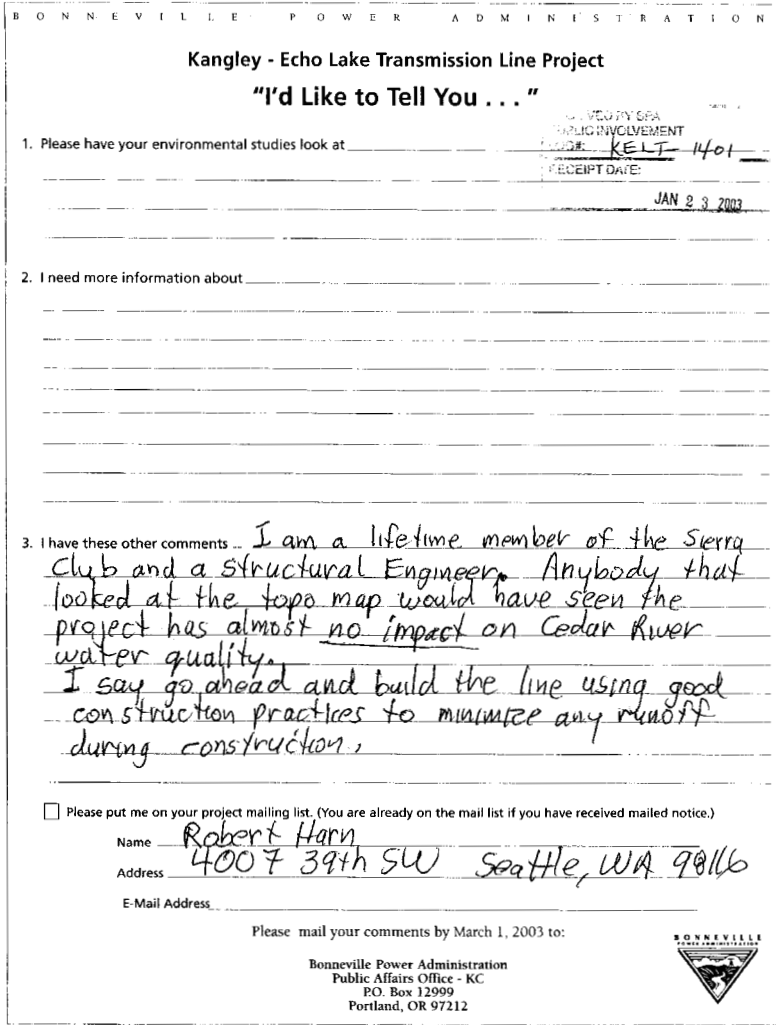 BONNEVILLE POWER ADMINISTRATION
Kangley - Echo Lake Transmission Line Project
"I'd Like to Tell You . . . "
PUBLIC INVOLVEMENT
1. Please have your environmental studies look at
LOG#: KELT- 1401
RECEIPT DATE:
JAN 2 3 2003
2. I need more information about
3. I have these other comments I am a lifetime member of the Sierra
Club and a structural Engineer. Anybody that
looked at the topo map would have seen the
project has almost no impact on Cedar River
water quality.
I say go ahead and build the line using good
construction practices to minimize any runoff
during construction.
Please put me on your project mailing list. (You are already on the mail list if you have received mailed notice.)
Name Robert Harn
Address 4007 39th SW Seattle, WA 98116
E-Mail Address
Please mail your comments by March 1, 2003 to:
Bonneville Power Administration
Public Affairs Office - KC
P.O. Box 12999
Portland, OR 97212
BONNEVILLE
POWER ADMINISTRATION